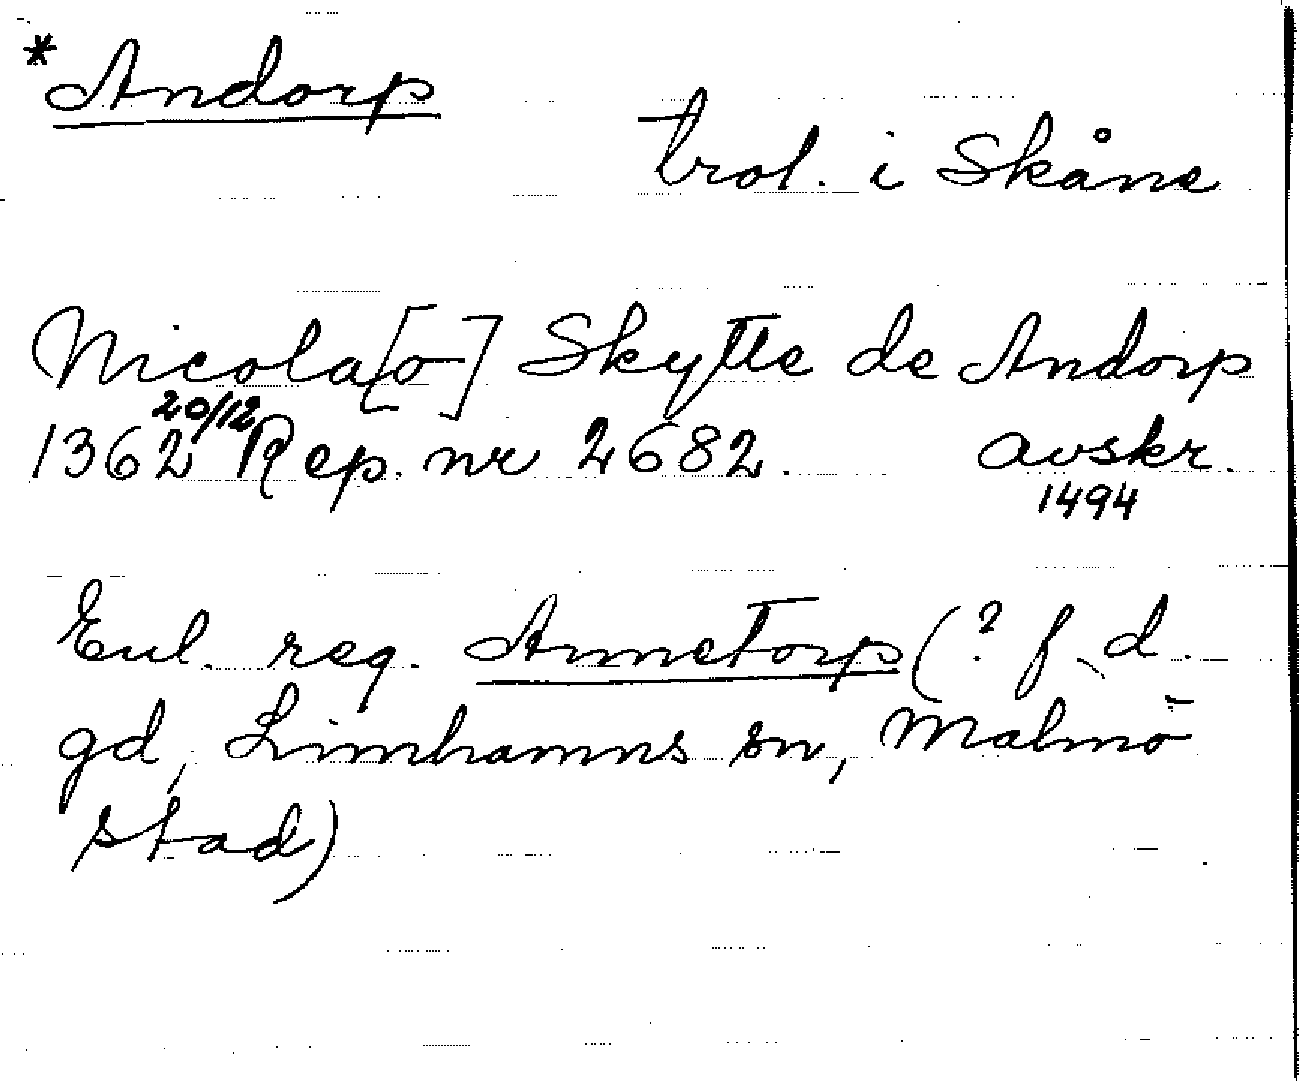 *Andorp
trol. i Skåne
Nicola[o-] Skytte de Andorp
1362 20/12 Rep. nr 2682. avskr.
1494
Enl. reg. Annetorp (? f. d.
gd, Limhamns sn, Malmö
stad)